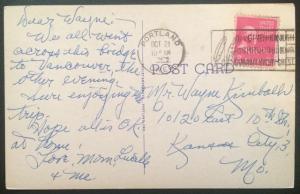 Dear Wayne:
We all went
across this bridge
to Vancouver, the
other evening.
Sure enjoying
trip
Hope all is O.K.
at home!
Love, Mom, Lucille
& me
PORTLAND
OCT 21
POST CARD
Mr. Wayne Kimball
1020 East 10th St.
Kansas City, 3
Mo.